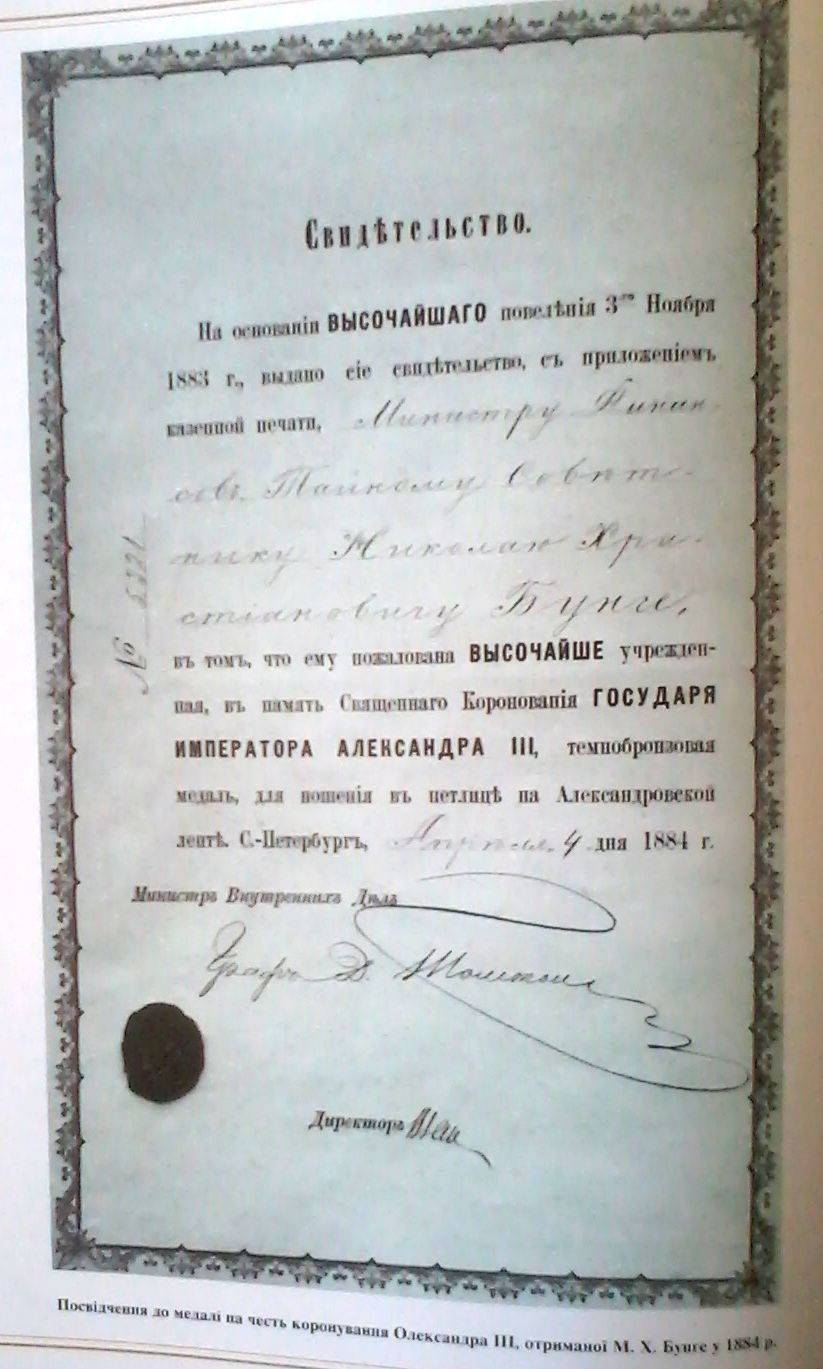 Свидѣтельство.
На основаніи ВЫСОЧАЙШАГО повелѣнія 3го Ноября
1883 г., выдано сіе свидѣтельство, съ приложеніемъ
казенной печати, Министру Финан-
совъ Тайному Совѣт-
нику Николаю Хри-
стіановичу Бунге,
въ томъ, что ему пожалована ВЫСОЧАЙШЕ учрежден-
ная, въ память Священнаго Коронованія ГОСУДАРЯ
ИМПЕРАТОРА АЛЕКСАНДРА III, темнобронзовая
медаль, для ношенія въ петлицѣ на Александровской
лентѣ. С.-Петербургъ, Апрѣля 4 дня 1884 г.
№
Министръ Внутреннихъ Дѣлъ
Графъ Д. Толстой
Директоръ
Посвідчення до медалі на честь коронування Олександра III, отриманої М. Х. Бунге у 1884 р.